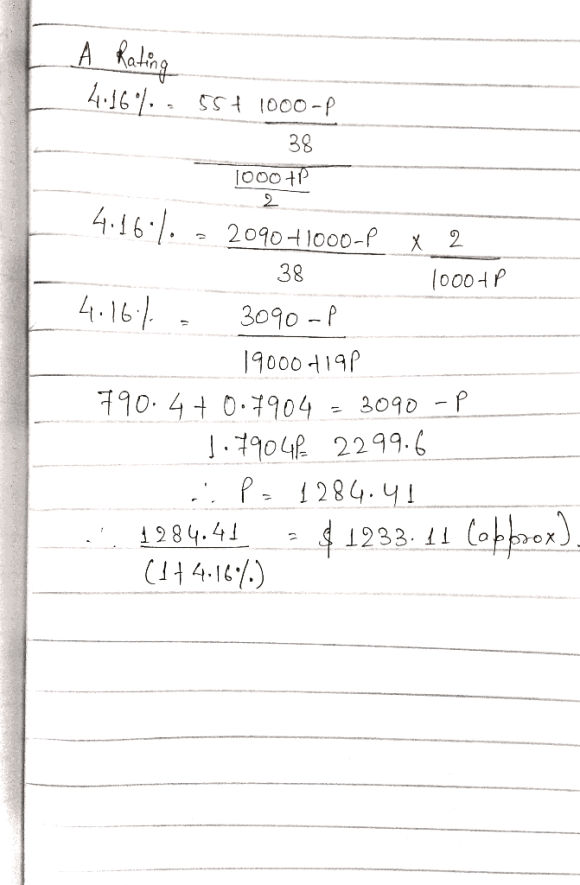 A Rating
4.16%. = 55+ 1000-P
38
1000+P
2
4.16%. = 2090+1000-P x 2
38 1000+P
4.16%. = 3090-P
19000+19P
790.4+0.7904 = 3090-P
1.7904P= 2299.6
∴ P= 1284.41
∴ 1284.41 = $1233.11 (approx).
(1+4.16%.)